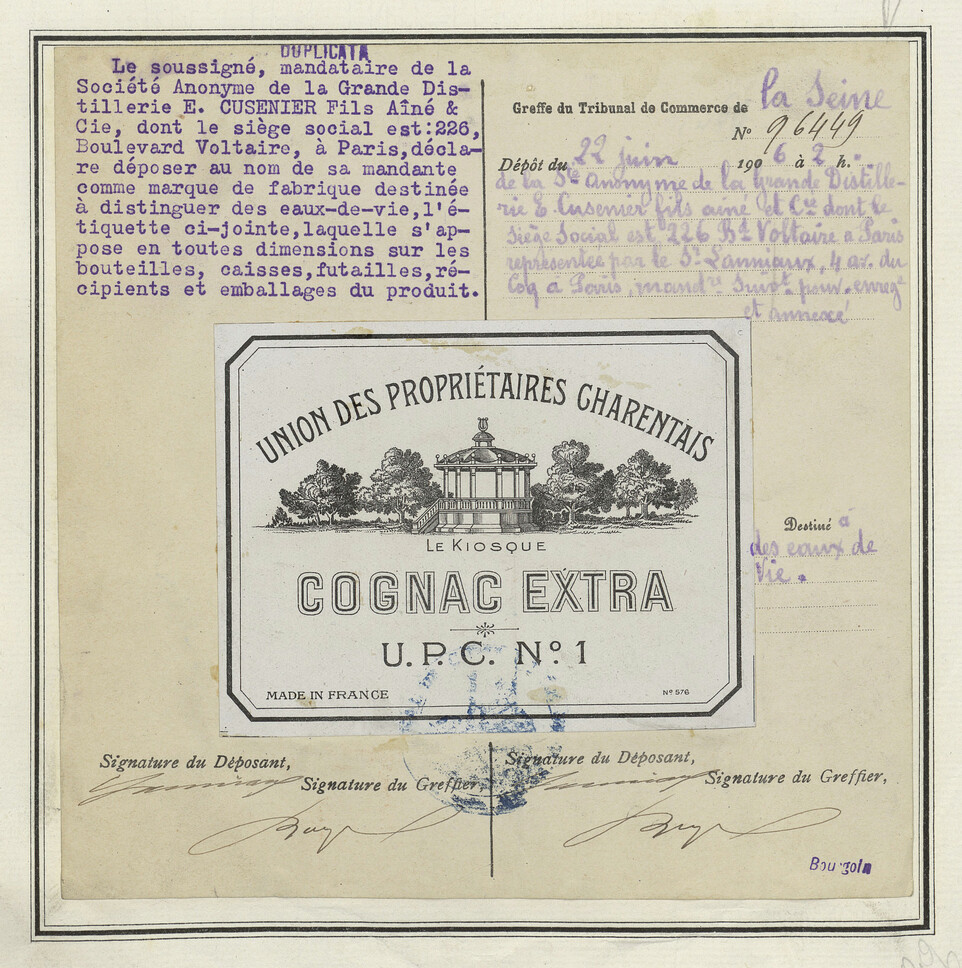 DUPLICATA
Le soussigné, mandataire de la
Société Anonyme de la Grande Dis-
tillerie E. CUSENIER Fils Aîné &
Cie, dont le siège social est:226,
Boulevard Voltaire, à Paris,décla-
re déposer au nom de sa mandante
comme marque de fabrique destinée
à distinguer des eaux-de-vie,l'é-
tiquette ci-jointe,laquelle s'ap-
pose en toutes dimensions sur les
bouteilles, caisses,futailles,ré-
cipients et emballages du produit.
Greffe du Tribunal de Commerce de la Seine
No 96449
Dépôt du 22 juin 1906 à 2 h.
de la Sté anonyme de la Grande Distille-
rie E. Cusenier fils ainé et Cie dont le
Siège Social est 226 Bd Voltaire a Paris
représentée par le Sr Lanniaux, 4 av. du
Coq a Paris, mandre Suivt pouv. enregé
et annexé
UNION DES PROPRIÉTAIRES CHARENTAIS
LE KIOSQUE
COGNAC EXTRA
U.P.C. No 1
MADE IN FRANCE
No 576
Destiné à
des eaux de
Vie.
Signature du Déposant,
Signature du Greffier,
Signature du Déposant,
Signature du Greffier,
Bourgoin